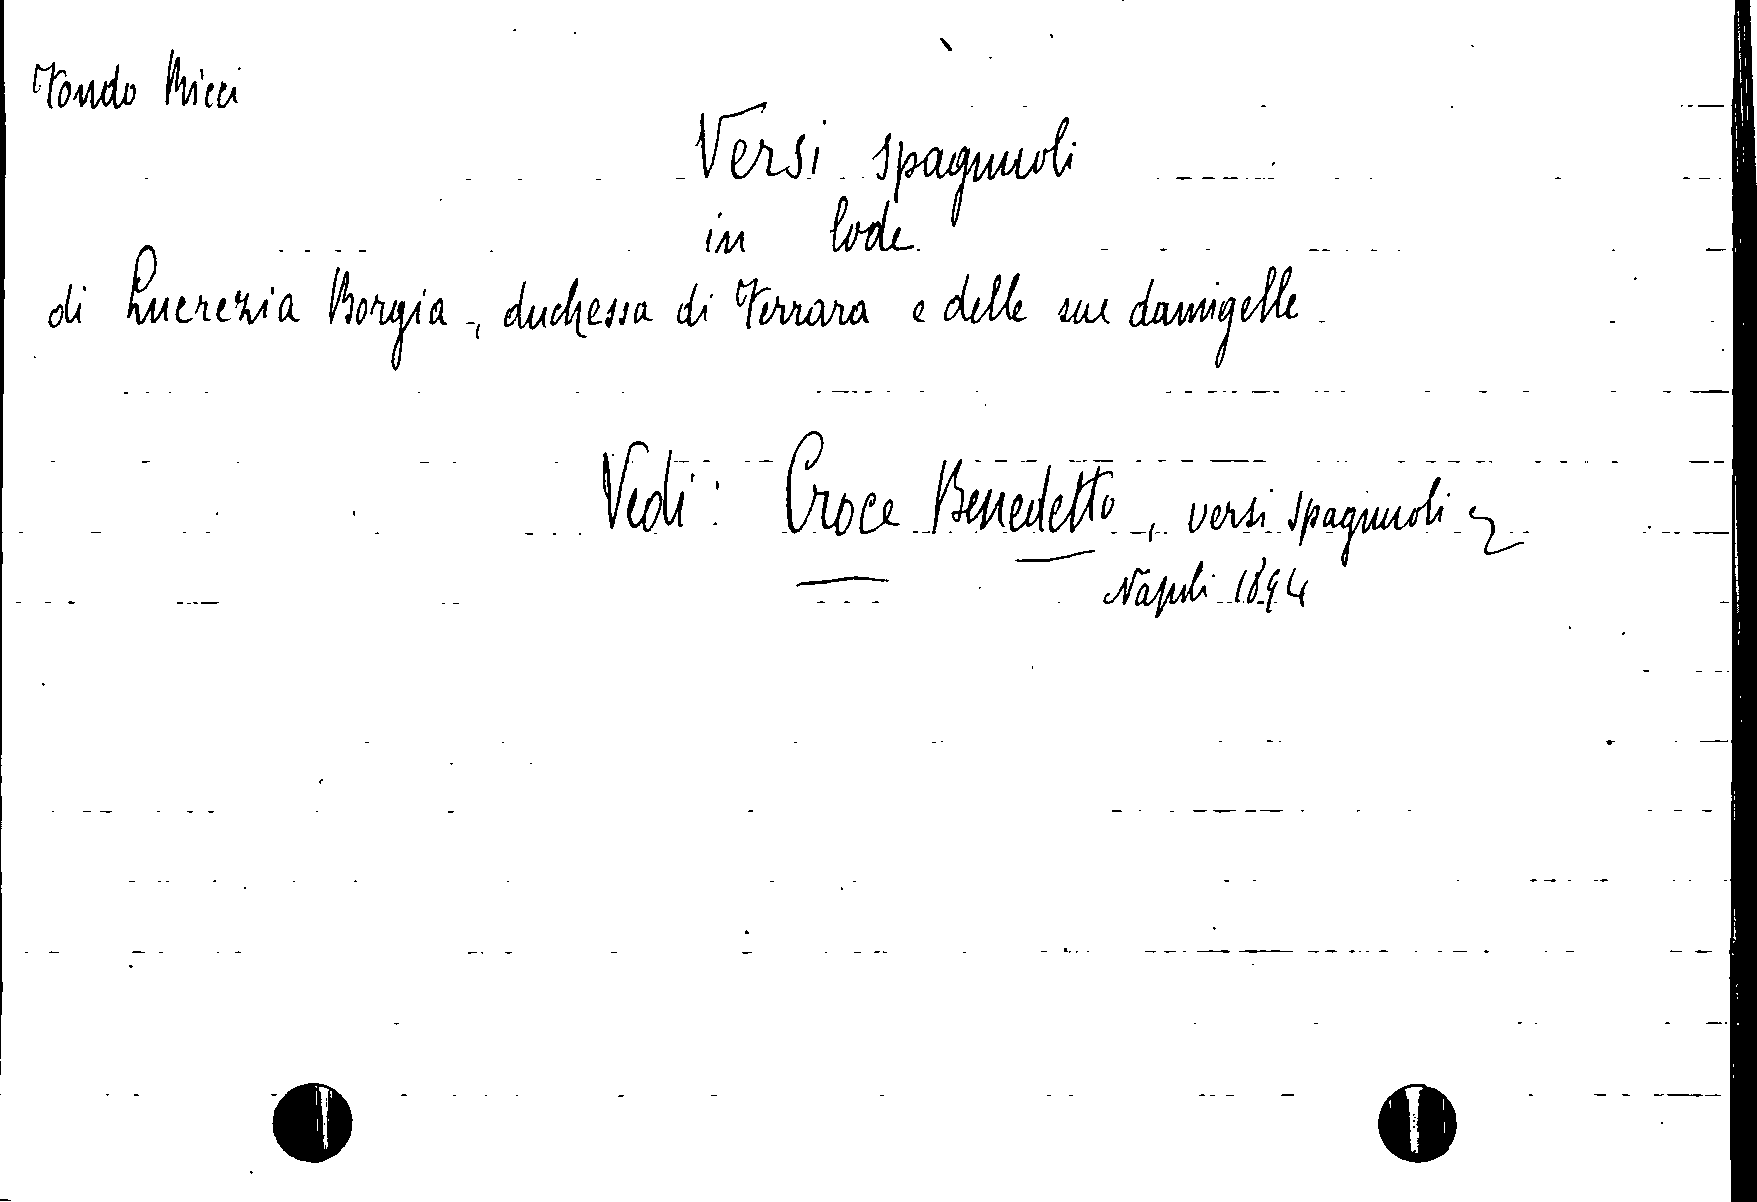 Fondo Ricci
Versi spagnuoli
in lode
di Lucrezia Borgia, duchessa di Ferrara e delle sue damigelle
Vedi: Croce Benedetto, versi spagnuoli
Napoli 1894